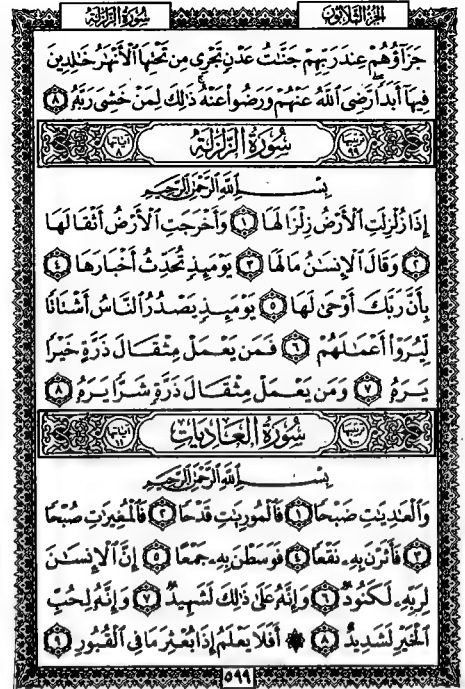 سُورَةُ الزَّلْزَلَةِ الجُزْءُ الثَّلَاثُونَ
جَزَآؤُهُمْ عِندَ رَبِّهِمْ جَنَّٰتُ عَدْنٍ تَجْرِى مِن تَحْتِهَا ٱلْأَنْهَٰرُ خَٰلِدِينَ
فِيهَآ أَبَدًا ۖ رَّضِىَ ٱللَّهُ عَنْهُمْ وَرَضُوا۟ عَنْهُ ۚ ذَٰلِكَ لِمَنْ خَشِىَ رَبَّهُۥ ٨
ترتيبها ٩٩ سُورَةُ الزَّلْزَلَةِ آياتها ٨
بِسْمِ ٱللَّهِ ٱلرَّحْمَٰنِ ٱلرَّحِيمِ
إِذَا زُلْزِلَتِ ٱلْأَرْضُ زِلْزَالَهَا ١ وَأَخْرَجَتِ ٱلْأَرْضُ أَثْقَالَهَا
٢ وَقَالَ ٱلْإِنسَٰنُ مَا لَهَا ٣ يَوْمَئِذٍ تُحَدِّثُ أَخْبَارَهَا ٤
بِأَنَّ رَبَّكَ أَوْحَىٰ لَهَا ٥ يَوْمَئِذٍ يَصْدُرُ ٱلنَّاسُ أَشْتَاتًا
لِّيُرَوْا۟ أَعْمَٰلَهُمْ ٦ فَمَن يَعْمَلْ مِثْقَالَ ذَرَّةٍ خَيْرًا
يَرَهُۥ ٧ وَمَن يَعْمَلْ مِثْقَالَ ذَرَّةٍ شَرًّا يَرَهُۥ ٨
ترتيبها ١٠٠ سُورَةُ العَادِيَاتِ آياتها ١١
بِسْمِ ٱللَّهِ ٱلرَّحْمَٰنِ ٱلرَّحِيمِ
وَٱلْعَٰدِيَٰتِ ضَبْحًا ١ فَٱلْمُورِيَٰتِ قَدْحًا ٢ فَٱلْمُغِيرَٰتِ صُبْحًا
٣ فَأَثَرْنَ بِهِۦ نَقْعًا ٤ فَوَسَطْنَ بِهِۦ جَمْعًا ٥ إِنَّ ٱلْإِنسَٰنَ
لِرَبِّهِۦ لَكَنُودٌ ٦ وَإِنَّهُۥ عَلَىٰ ذَٰلِكَ لَشَهِيدٌ ٧ وَإِنَّهُۥ لِحُبِّ
ٱلْخَيْرِ لَشَدِيدٌ ٨ ۞ أَفَلَا يَعْلَمُ إِذَا بُعْثِرَ مَا فِى ٱلْقُبُورِ ٩
٥٩٩